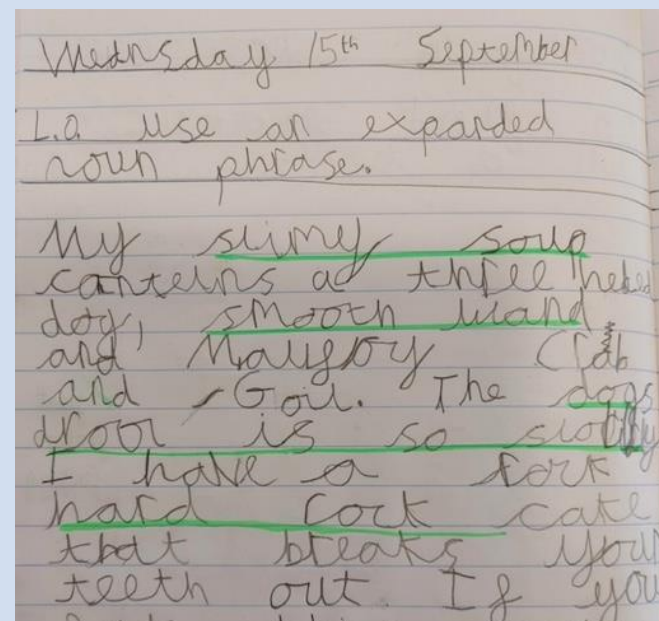 Wednsday 15th September
L.O use an expanded
noun phrase.
My slimey soup
conteins a three heded
dog, smooth wand
and Malyfoy Crab
and Goil. The dogs
drool is so slobby
I have a rock
hard rock cake
that breaks your
teeth out. If you